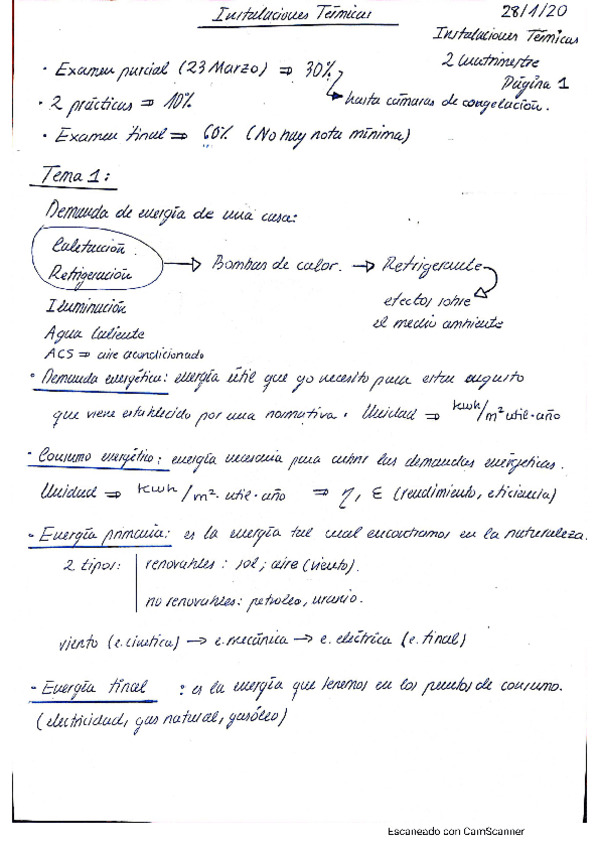 Instalaciones Térmicas
28/1/20
Instalaciones Térmicas
2 Cuatrimestre
Página 1
· Examen parcial (23 Marzo) ⇒ 30%
↳ hasta cámaras de congelación.
· 2 prácticas ⇒ 10%
· Examen final ⇒ 60% (No hay nota mínima)
Tema 1:
Demanda de energía de una casa:
Calefacción
Refrigeración
→ Bombas de calor. → Refrigerante
efectos sobre
el medio ambiente
Iluminación
Agua Caliente
ACS ⇒ aire acondicionado
· Demanda energética: energía útil que yo necesito para estar augusto
que viene establecido por una normativa. Unidad ⇒ kwh/m² util·año
· Consumo energético: energía necesaria para cubrir las demandas energéticas.
Unidad ⇒ kwh/m²·util·año ⇒ η, ε (rendimiento, eficiencia)
· Energía primaria: es la energía tal cual encontramos en la naturaleza.
2 tipos: renovables: sol; aire (viento).
no renovables: petroleo, uranio.
viento (e. cinetica) → e. mecánica → e. eléctrica (e. final)
· Energía final : es la energía que tenemos en los puntos de consumo.
(electricidad, gas natural, gasóleo)
Escaneado con CamScanner